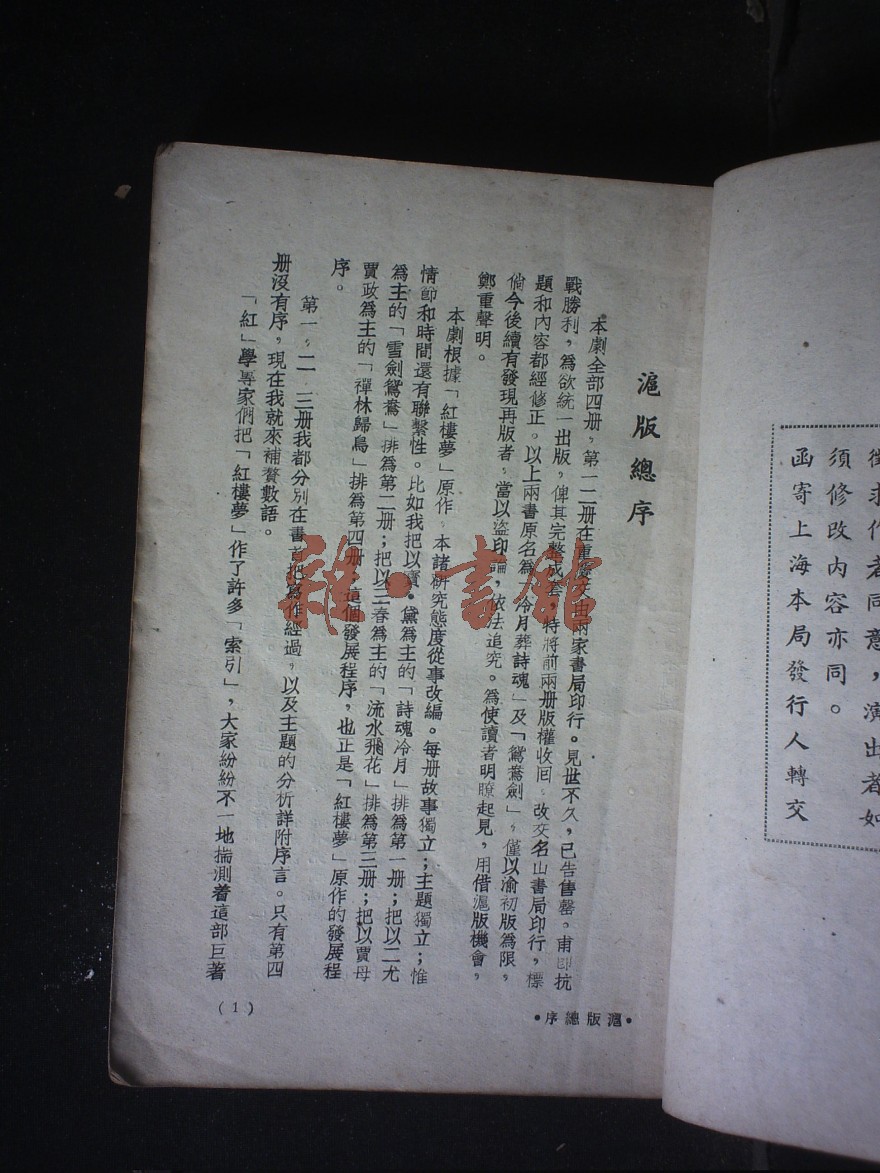 徵求作者同意，演出者如
須修改內容亦同。
函寄上海本局發行人轉交
滬版總序
本劇全部四册，第一二册在重慶交由兩家書局印行。見世不久，已告售罄。甫卽抗
戰勝利，爲欲統一出版，俾其完整成套，特將前兩册版權收回，改交名山書局印行，標
題和內容都經修正。以上兩書原名爲「冷月葬詩魂」及「鴛鴦劍」，僅以渝初版爲限，
倘今後續有發現再版者，當以盜印論，依法追究。爲使讀者明瞭起見，用借滬版機會，
鄭重聲明。
本劇根據「紅樓夢」原作，本諸研究態度從事改編。每册故事獨立；主題獨立；惟
情節和時間還有聯繫性。比如我把以寶·黛爲主的「詩魂冷月」排爲第一册；把以二尤
爲主的「雪劍鴛鴦」排爲第二册；把以三春爲主的「流水飛花」排爲第三册；把以賈母
賈政爲主的「禪林歸鳥」排爲第四册，這個發展程序，也正是「紅樓夢」原作的發展程
序。
第一，二，三册我都分別在書首把寫作經過，以及主題的分析詳附序言。只有第四
册沒有序，現在我就來補贅數語。
「紅」學專家們把「紅樓夢」作了許多「索引」，大家紛紛不一地揣測着這部巨著
•滬版總序•
(1)
雜·書館